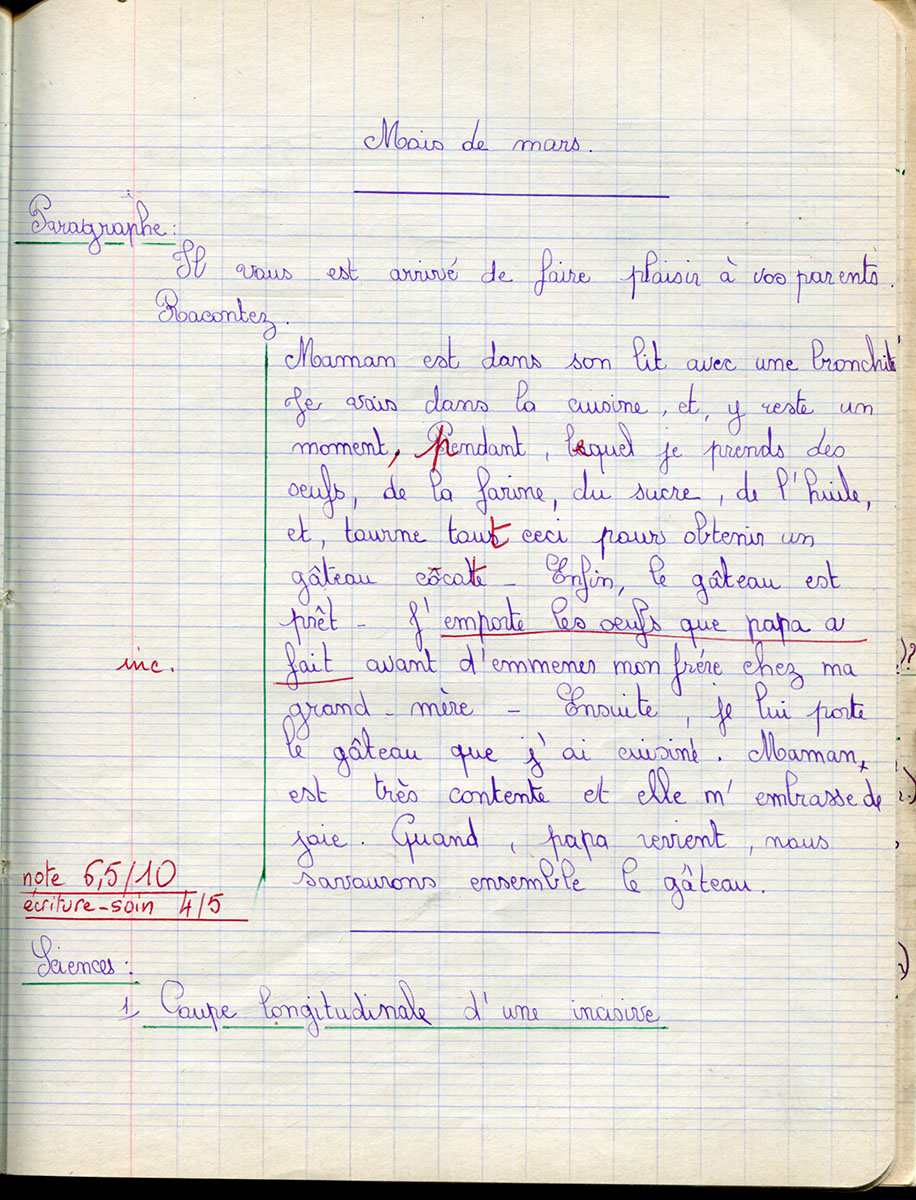 Mois de mars.
Paragraphe :
Il vous est arrivé de faire plaisir à vos parents.
Racontez.
Maman est dans son lit avec une bronchite
Je vais dans la cuisine, et, y reste un
moment, pendant, lequel je prends des
oeufs, de la farine, du sucre, de l'huile,
et, tourne tout ceci pour obtenir un
gâteau
Enfin, le gâteau est
prêt - J'emporte les oeufs que papa a
inc. fait avant d'emmener mon frére chez ma
grand-mère - Ensuite, je lui porte
le gâteau que j'ai cuisiné. Maman,
est très contente et elle m'embrasse de
joie. Quand, papa revient, nous
note 6,5/10 savourons ensemble le gâteau.
écriture-soin 4/5
Sciences :
1 Coupe longitudinale d'une incisive